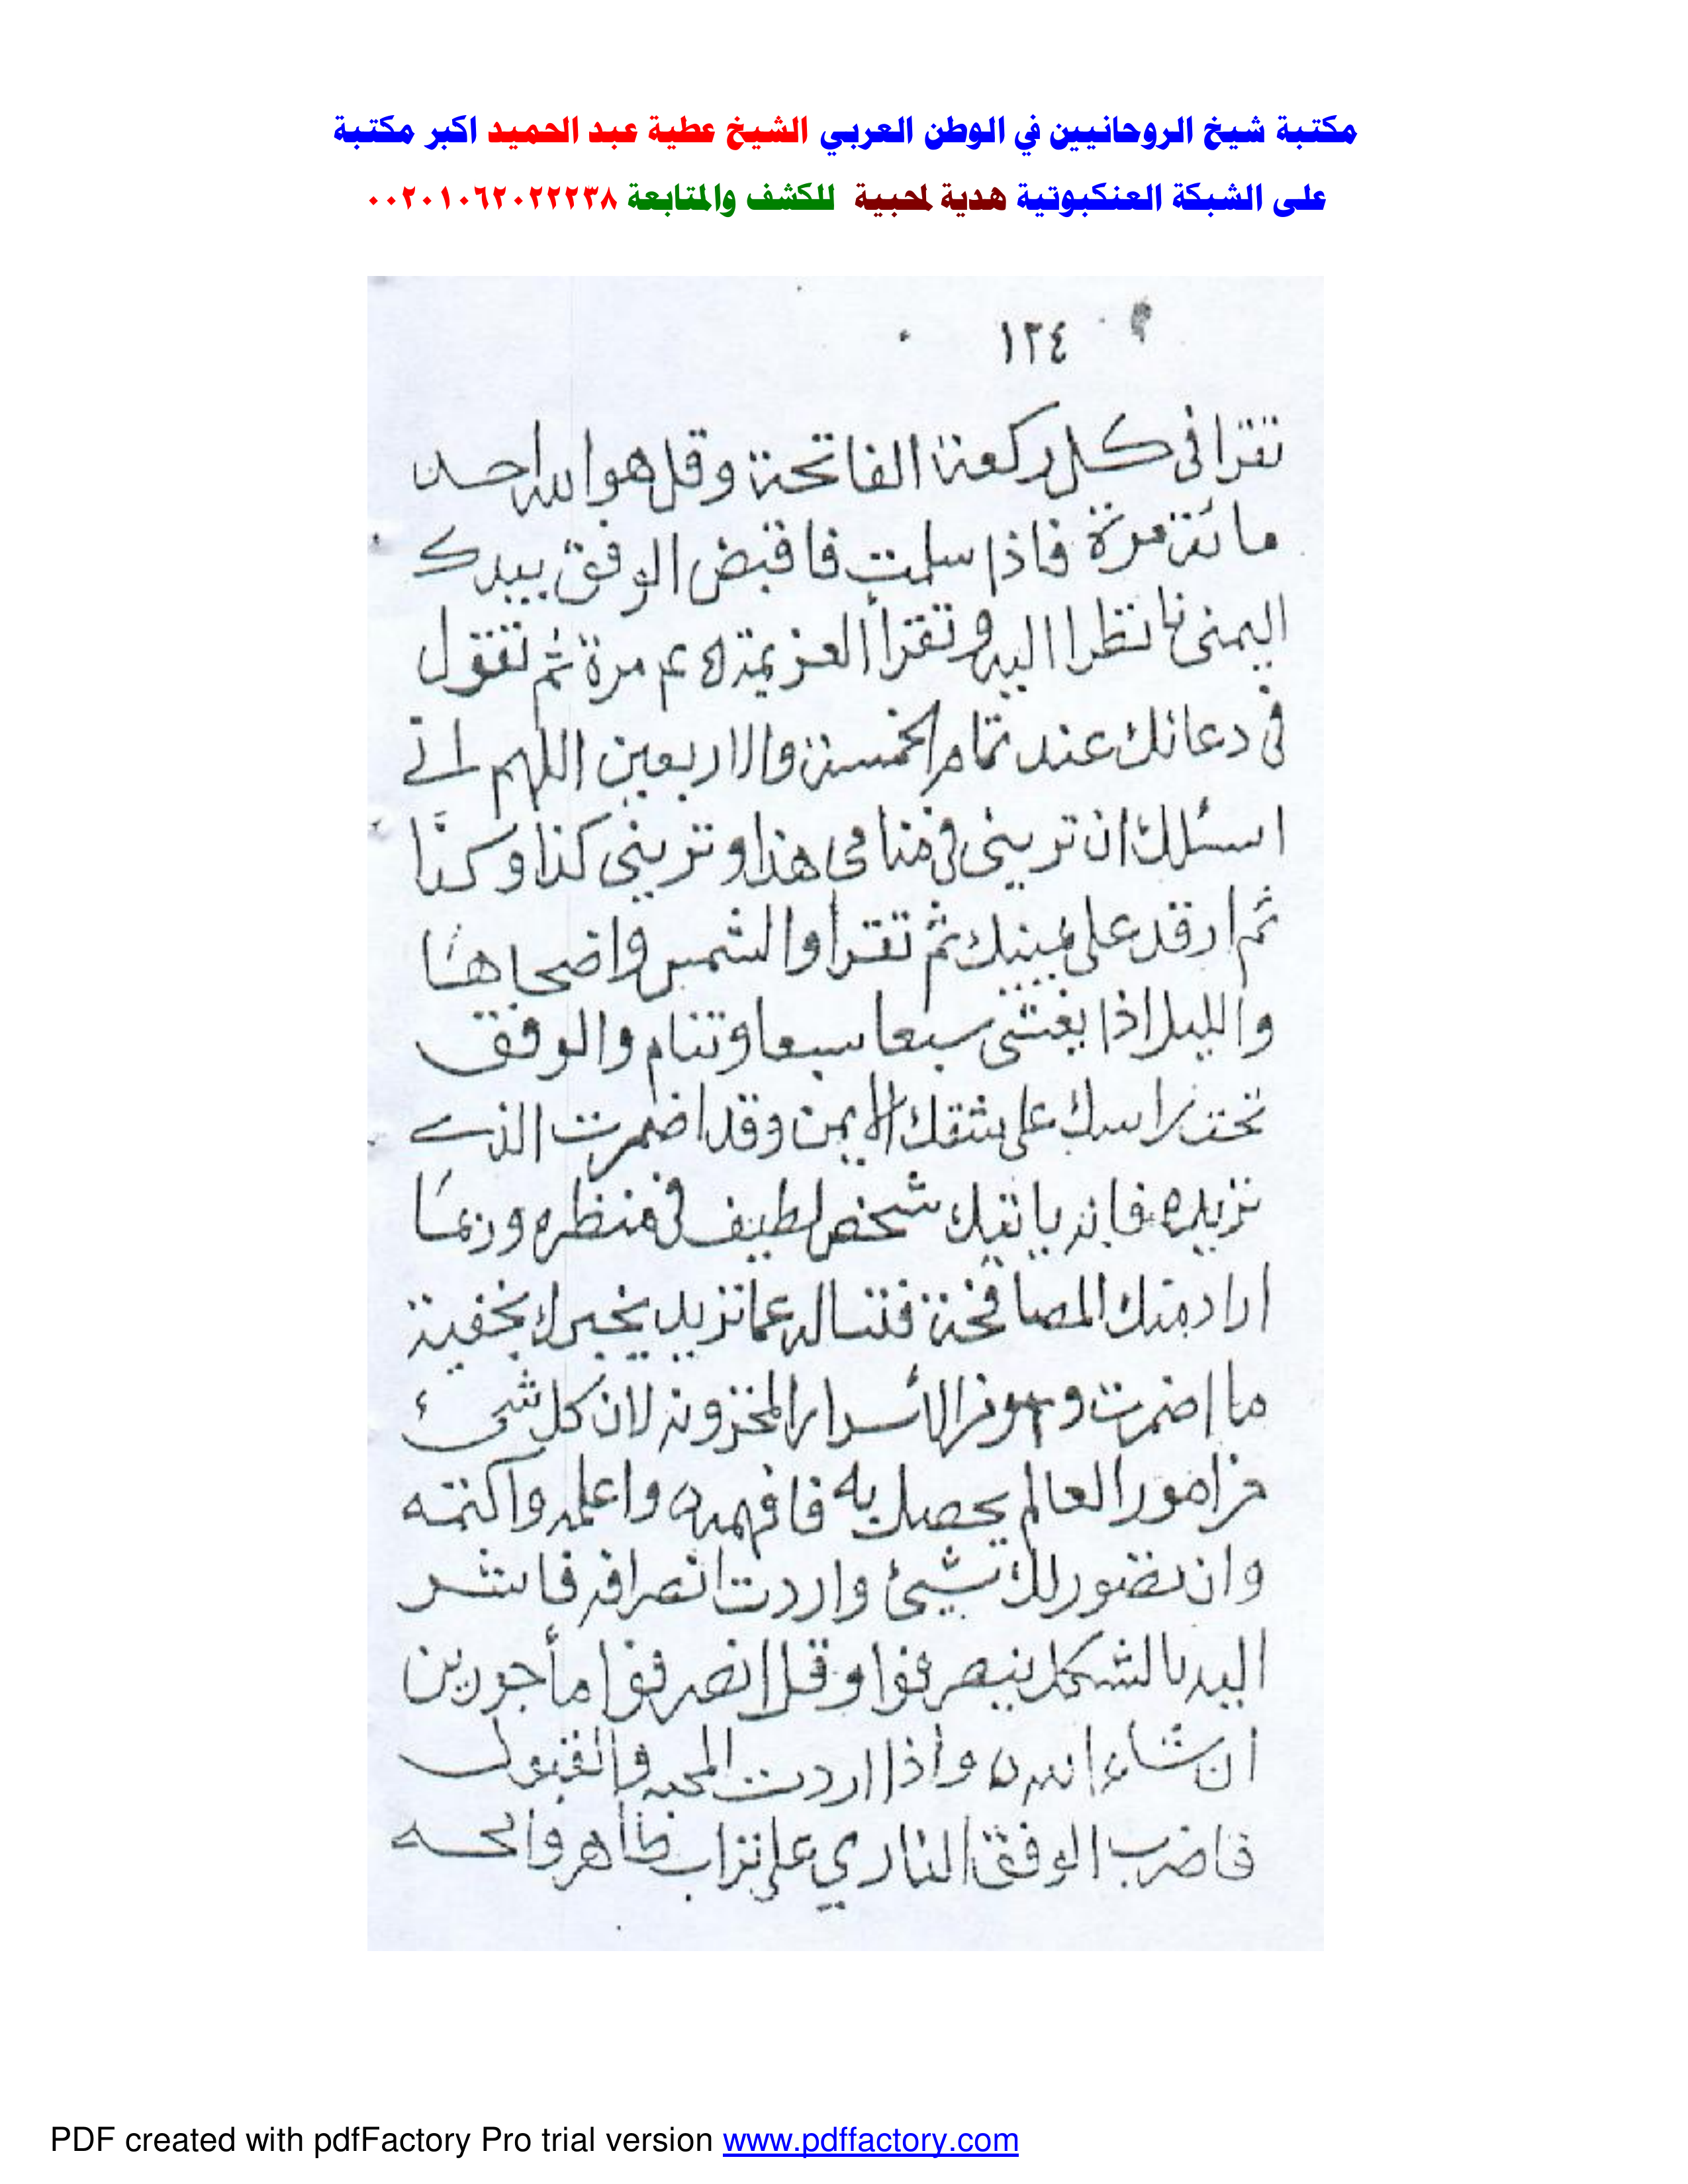 مكتبة شيخ الروحانيين في الوطن العربي الشيخ عطية عبد الحميد اكبر مكتبة
على الشبكة العنكبوتية هدية لمحبية للكشف والمتابعة ٠٠٢٠١٠٦٢٠٢٢٢٣٨
١٢٤
تقرا فى كل ركعة الفاتحة وقل هو الله احد
مائة مرة فاذا سلمت فاقبض الوفق بيدك
اليمنى نا نتظرا اليه وتقرأ العزيمة ٤٥ مرة ثم تقول
فى دعائك عند تمام الخمسة والاربعين اللهم انى
اسئلك ان ترينى فى منامى هذا وترينى كذا وكذا
ثم ارقد على يمينك ثم تقرا والشمس واضحاها
والليل اذا يغشى سبعا سبعا وتنام والوفق
تحت راسك على شقك الايمن وقد اضمرت الذى
تريده فانه ياتيك شخص لطيف فى منظره وربما
اراد منك المصافحة فتساله عما تريد يخبرك بخفية
ما اضمرت و من الأسرار المخزونه لان كل شىء
من امور العالم يحصل به فافهمه واعلمه واكتمه
وان تصور لك شيئ واردت انصرافه فانشر
اليه بالشكل ينصرفوا وقل انصرفوا مأجورين
ان شاء الله واذا اردت المحبه والقبول
فاضرب الوفق النارى على تراب طاهر وامحه
PDF created with pdfFactory Pro trial version www.pdffactory.com